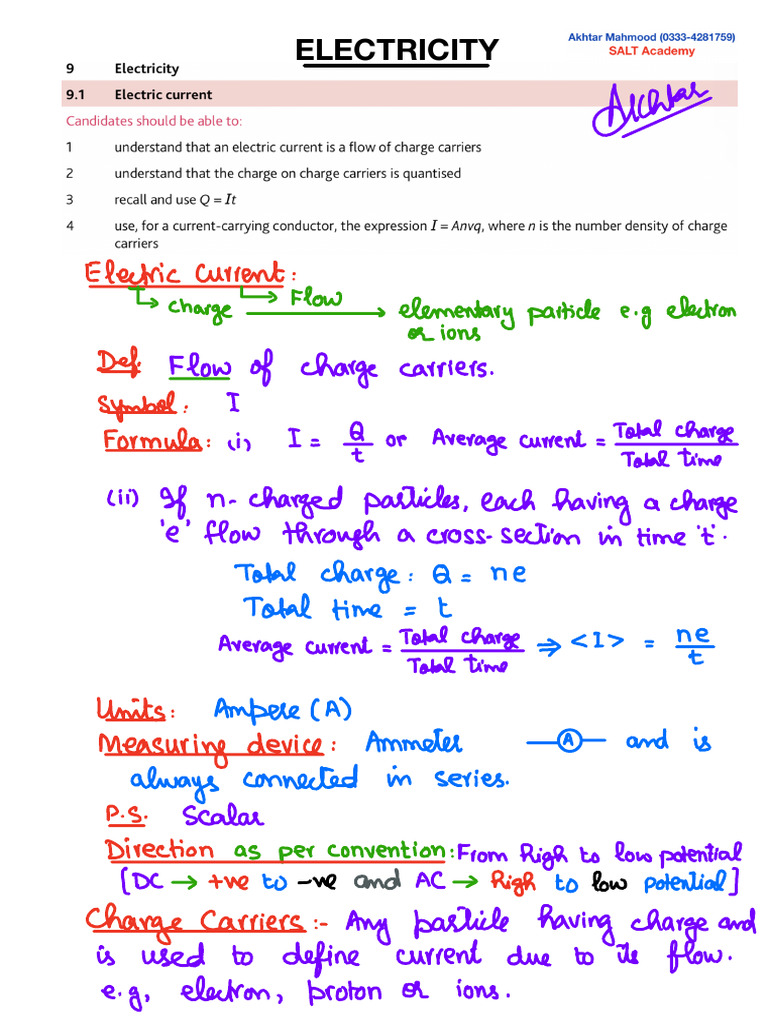 ELECTRICITY
Akhtar Mahmood (0333-4281759)
SALT Academy
9 Electricity
9.1 Electric current
Akhtar
Candidates should be able to:
1 understand that an electric current is a flow of charge carriers
2 understand that the charge on charge carriers is quantised
3 recall and use Q = It
4 use, for a current-carrying conductor, the expression I = Anvq, where n is the number density of charge
carriers
Electric Current:
charge → Flow → elementary particle e.g electron
or ions
Def Flow of charge carriers.
Symbol: I
Formula: (i) I = Q/t or Average current = Total charge/Total time
(ii) If n-charged particles, each having a charge
'e' flow through a cross-section in time 't'.
Total charge: Q = ne
Total time = t
Average current = Total charge/Total time ⇒ <I> = ne/t
Units: Ampere (A)
Measuring device: Ammeter —(A)— and is
always connected in series.
P.S. Scalar
Direction as per convention: From High to low potential
[DC → +ve to -ve and AC → High to low potential]
Charge Carriers :- Any particle having charge and
is used to define current due to its flow.
e.g, electron, proton or ions.